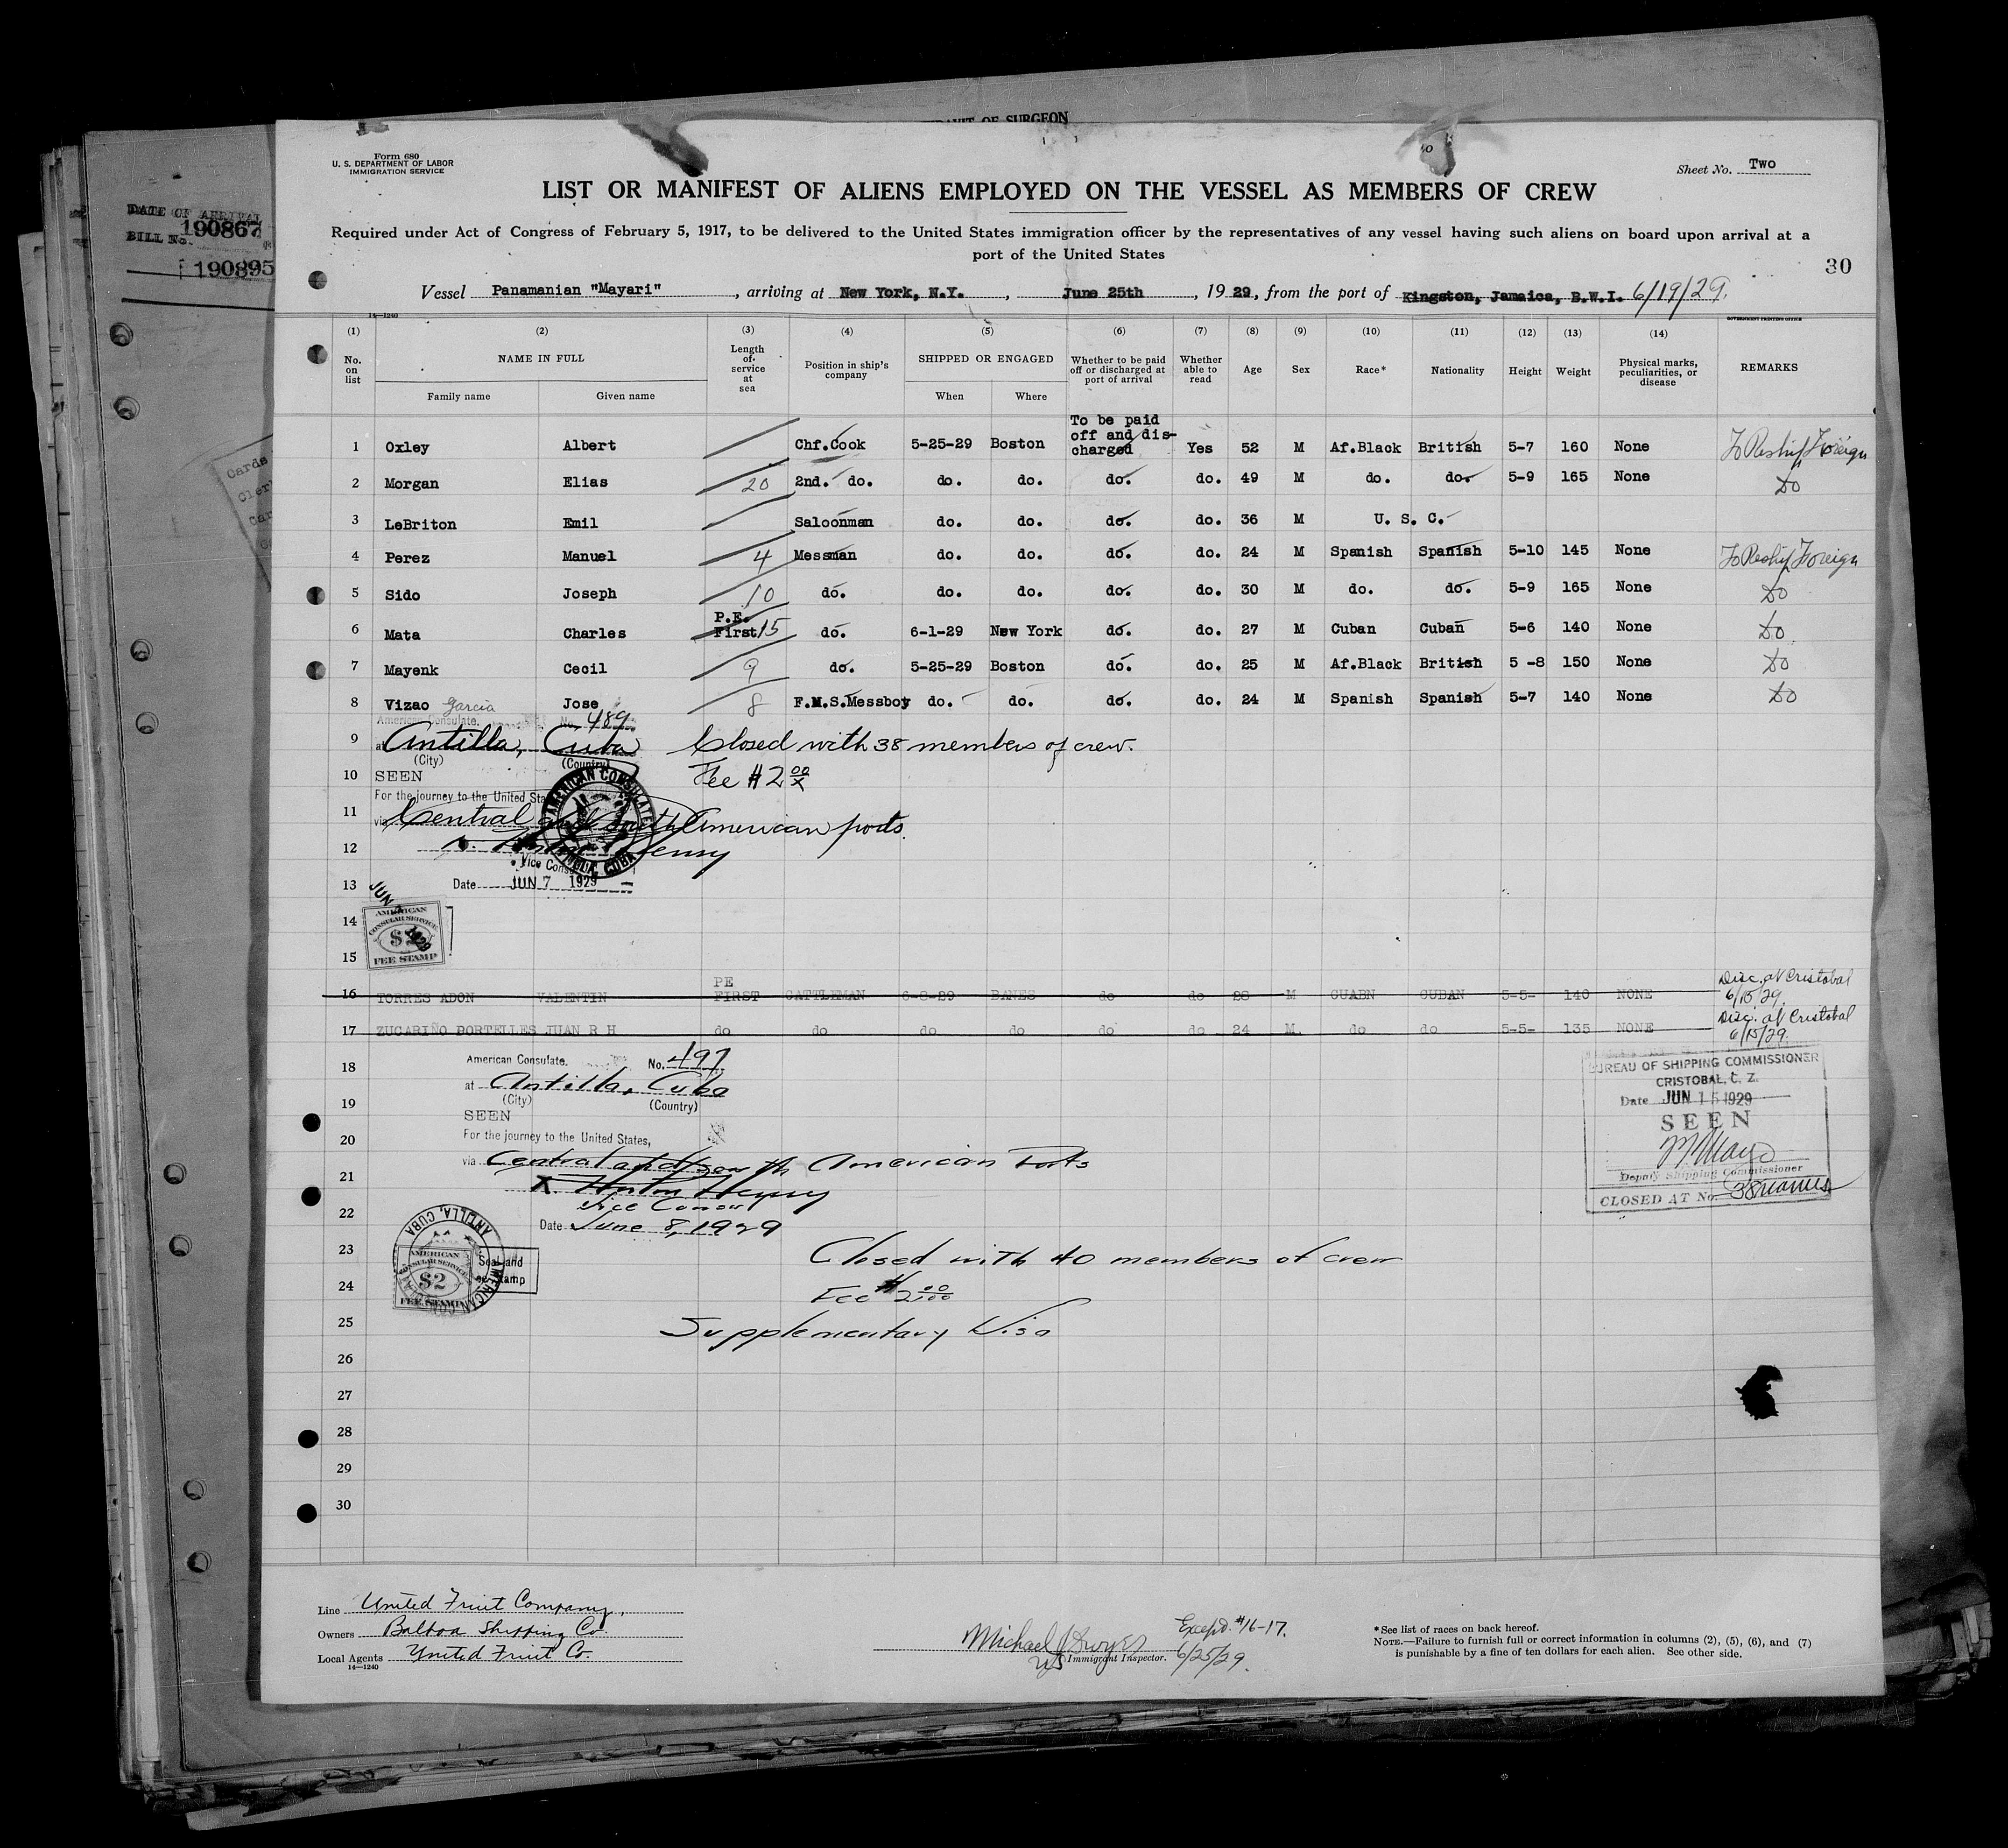 AFFIDAVIT OF SURGEON
DATE OF ARRIVAL
190867
BILL No.
190895
Cards
Form 680
U. S. DEPARTMENT OF LABOR
IMMIGRATION SERVICE
Sheet No. Two
LIST OR MANIFEST OF ALIENS EMPLOYED ON THE VESSEL AS MEMBERS OF CREW
Required under Act of Congress of February 5, 1917, to be delivered to the United States immigration officer by the representatives of any vessel having such aliens on board upon arrival at a
port of the United States
30
Vessel Panamanian "Mayari", arriving at New York, N.Y., June 25th, 1929, from the port of Kingston, Jamaica, B.W.I. 6/19/29.
14—1240
GOVERNMENT PRINTING OFFICE
(1) (2) (3) (4) (5) (6) (7) (8) (9) (10) (11) (12) (13) (14)
No. on list NAME IN FULL Length of service at sea Position in ship's company SHIPPED OR ENGAGED Whether to be paid off or discharged at port of arrival Whether able to read Age Sex Race* Nationality Height Weight Physical marks, peculiarities, or disease REMARKS
Family name Given name When Where
1 Oxley Albert Chf.Cook 5-25-29 Boston To be paid off and discharged Yes 52 M Af.Black British 5-7 160 None To Reship Foreign
2 Morgan Elias 20 2nd. do. do. do. do. do. 49 M do. do. 5-9 165 None Do
3 LeBriton Emil Saloonman do. do. do. do. 36 M U. S. C.
4 Perez Manuel 4 Messman do. do. do. do. 24 M Spanish Spanish 5-10 145 None To Reship Foreign
5 Sido Joseph 10 do. do. do. do. do. 30 M do. do. 5-9 165 None Do
6 Mata Charles P.E. First 15 do. 6-1-29 New York do. do. 27 M Cuban Cuban 5-6 140 None Do
7 Mayenk Cecil 9 do. 5-25-29 Boston do. do. 25 M Af.Black British 5 -8 150 None Do
8 Vizao Garcia Jose 8 F.M.S.Messboy do. do. do. do. 24 M Spanish Spanish 5-7 140 None Do
American Consulate. No. 489
9 at Antilla, Cuba Closed with 38 members of crew.
(City) (Country)
10 SEEN Fee $2 00/x
For the journey to the United Sta
AMERICAN CONSULATE
11 via Central and South American ports.
12 Henry
Vice Cons
CUBA
13 Date JUN 7 1929
JUN
14 AMERICAN
CONSULAR SERVICE
$2
15 FEE STAMP
16 TORRES ADON VALENTIN PE FIRST CATTLEMAN 6-8-29 BANES do do 28 M CUABN CUBAN 5-5- 140 NONE Disc. at Cristobal 6/15/29.
17 ZUCARIÑO PORTELLES JUAN R H do do do do do do 24 M. do do 5-5- 135 NONE Disc. at Cristobal 6/15/29.
18 American Consulate. No. 497
at Antilla, Cuba
19 (City) (Country)
SEEN
20 For the journey to the United States,
21 via Central and South American Ports
Henry
22 Vice Consul
Date June 8, 1929
BUREAU OF SHIPPING COMMISSIONER
CRISTOBAL, C. Z.
Date JUN 15 1929
SEEN
Deputy Shipping Commissioner
CLOSED AT No. 38 names
ANTILLA, CUBA
AMERICAN
CONSULAR SERVICE
$2
FEE STAMP
Seal and
Stamp
23 Closed with 40 members of crew
24 Fee $2 00/100
25 Supplementary Visa
26
27
28
29
30
Line United Fruit Company,
Owners Balboa Shipping Co.
Local Agents United Fruit Co.
14—1240
Michael J Dwyer
Immigrant Inspector.
Excep'd. #16-17.
6/25/29.
*See list of races on back hereof.
NOTE.—Failure to furnish full or correct information in columns (2), (5), (6), and (7)
is punishable by a fine of ten dollars for each alien. See other side.